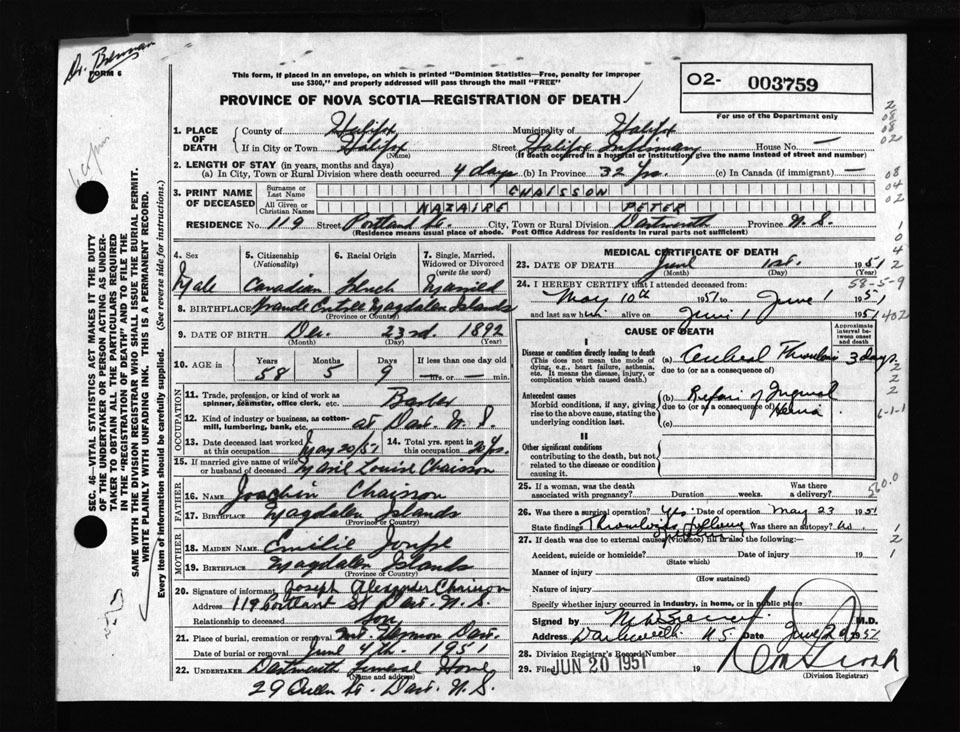 Dr. Brennan
FORM 6
This form, if placed in an envelope, on which is printed "Dominion Statistics—Free, penalty for improper
use $300," and properly addressed will pass through the mail "FREE"
PROVINCE OF NOVA SCOTIA—REGISTRATION OF DEATH
02- 003759
For use of the Department only
SEC. 46—VITAL STATISTICS ACT MAKES IT THE DUTY
OF THE UNDERTAKER OR PERSON ACTING AS UNDER-
TAKER TO OBTAIN ALL THE PARTICULARS REQUIRED
IN THE "REGISTRATION OF DEATH" AND TO FILE THE
SAME WITH THE DIVISION REGISTRAR WHO SHALL ISSUE THE BURIAL PERMIT.
WRITE PLAINLY WITH UNFADING INK. THIS IS A PERMANENT RECORD.
Every item of information should be carefully supplied. (See reverse side for instructions.)
1. PLACE OF DEATH County of Halifax Municipality of Halifax
If in City or Town Halifax (Name) Street Halifax Infirmary House No. —
(If death occurred in a hospital or institution, give the name instead of street and number)
2. LENGTH OF STAY (in years, months and days)
(a) In City, Town or Rural Division where death occurred 4 days (b) In Province 32 Yrs. (c) In Canada (if immigrant) —
3. PRINT NAME OF DECEASED Surname or Last Name CHAISSON
All Given or Christian Names NAZAIRE PETER
RESIDENCE No. 119 Street Portland St. City, Town or Rural Division Dartmouth Province N. S.
(Residence means usual place of abode. Post Office Address for residents in rural parts not sufficient)
4. Sex 5. Citizenship (Nationality) 6. Racial Origin 7. Single, Married, Widowed or Divorced (write the word)
Male Canadian French Married
8. BIRTHPLACE Magdalen Islands
(Province or Country)
9. DATE OF BIRTH Dec. 23rd 1892
(Month) (Day) (Year)
10. AGE in Years Months Days If less than one day old
58 5 9 — hrs. or — min.
OCCUPATION
11. Trade, profession, or kind of work as spinner, teamster, office clerk, etc. Barber
12. Kind of industry or business, as cotton-mill, lumbering, bank, etc. at Dart. N. S.
13. Date deceased last worked at this occupation May 20/51 14. Total yrs. spent in this occupation
15. If married give name of wife or husband of deceased Marie Louise Chaisson
FATHER
16. NAME Joachin Chaisson
17. BIRTHPLACE Magdalen Islands
(Province or Country)
MOTHER
18. MAIDEN NAME Emilie
19. BIRTHPLACE Magdalen Islands
(Province or Country)
20. Signature of informant Joseph Alexander Chaisson
Address 119 Portland St Dart. N. S.
Relationship to deceased son
21. Place of burial, cremation or removal Mt. Hermon Dart.
Date of burial or removal June 4th. 1951
22. UNDERTAKER Dartmouth Funeral Home
(Name and address)
29 Queen St. Dart. N. S.
MEDICAL CERTIFICATE OF DEATH
23. DATE OF DEATH June 1st. 1951
(Month) (Day) (Year)
24. I HEREBY CERTIFY that I attended deceased from:
May 10th 1951 to June 1 1951
and last saw him alive on June 1 1951
CAUSE OF DEATH
Approximate interval between onset and death
I
Disease or condition directly leading to death (a) Cerebral Thrombosis 3 days
(This does not mean the mode of dying, e.g., heart failure, asthenia, etc. It means the disease, injury, or complication which caused death.)
due to (or as a consequence of)
Antecedent causes (b) Repair of Inguinal Hernia
Morbid conditions, if any, giving rise to the above cause, stating the underlying condition last.
due to (or as a consequence of)
(c)
II
Other significant conditions
contributing to the death, but not related to the disease or condition causing it.
25. If a woman, was the death associated with pregnancy? Duration weeks. Was there a delivery?
26. Was there a surgical operation? Yes. Date of operation May 23 1951
State findings Thrombosis following Was there an autopsy? No.
27. If death was due to external causes (violence) fill in also the following:—
Accident, suicide or homicide? Date of injury 19
(State which)
Manner of injury
(How sustained)
Nature of injury
Specify whether injury occurred in industry, in home, or in public place
Signed by M.D.
Address Dartmouth N.S. Date June 20 1951
28. Division Registrar's Record Number
29. Filed JUN 20 1951 19
(Division Registrar)
58-5-9
402
6-1-1
560.0